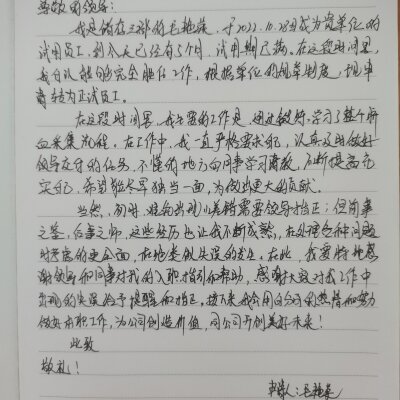 尊敬的领导:
我是储存之部的毛艳蕊，于2022.10.28日成为贵单位的
试用员工，到今天已经有5个月，试用期已满。在这段时间里，
我自认能够完全胜任工作，根据单位的规章制度，现申
请转为正式员工。
在这段时间里，我主要的工作是，通过锻炼，学习了整个
采集流程。在工作中，我一直严格要求自己，认真及时做好
领导交付的任务，不懂的地方向同事学习请教，不断提高充
实自己，希望能尽早独当一面，为做出更大的贡献。
当然，初时，难免出现小差错需要领导指正；但前事
之鉴，后事之师，这些经历也让我不断成熟，在处理各种问题
时考虑的更全面，在地类似失误的发生。在此，我要特地感
谢领导和同事对我的入职指引和帮助，感谢大家对我工作中
出现的失误给予提醒和指正。接下来我会用百分百的热情和努力
做好本职工作，为公司创造价值，同公司开创美好未来！
此致
敬礼！
申请人：毛艳蕊